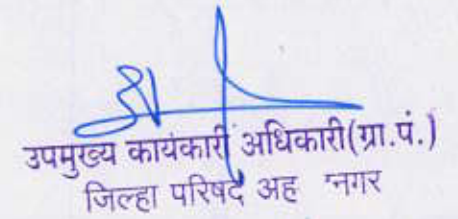 उपमुख्य कार्यकारी अधिकारी(ग्रा.पं.)
जिल्हा परिषद अह नगर